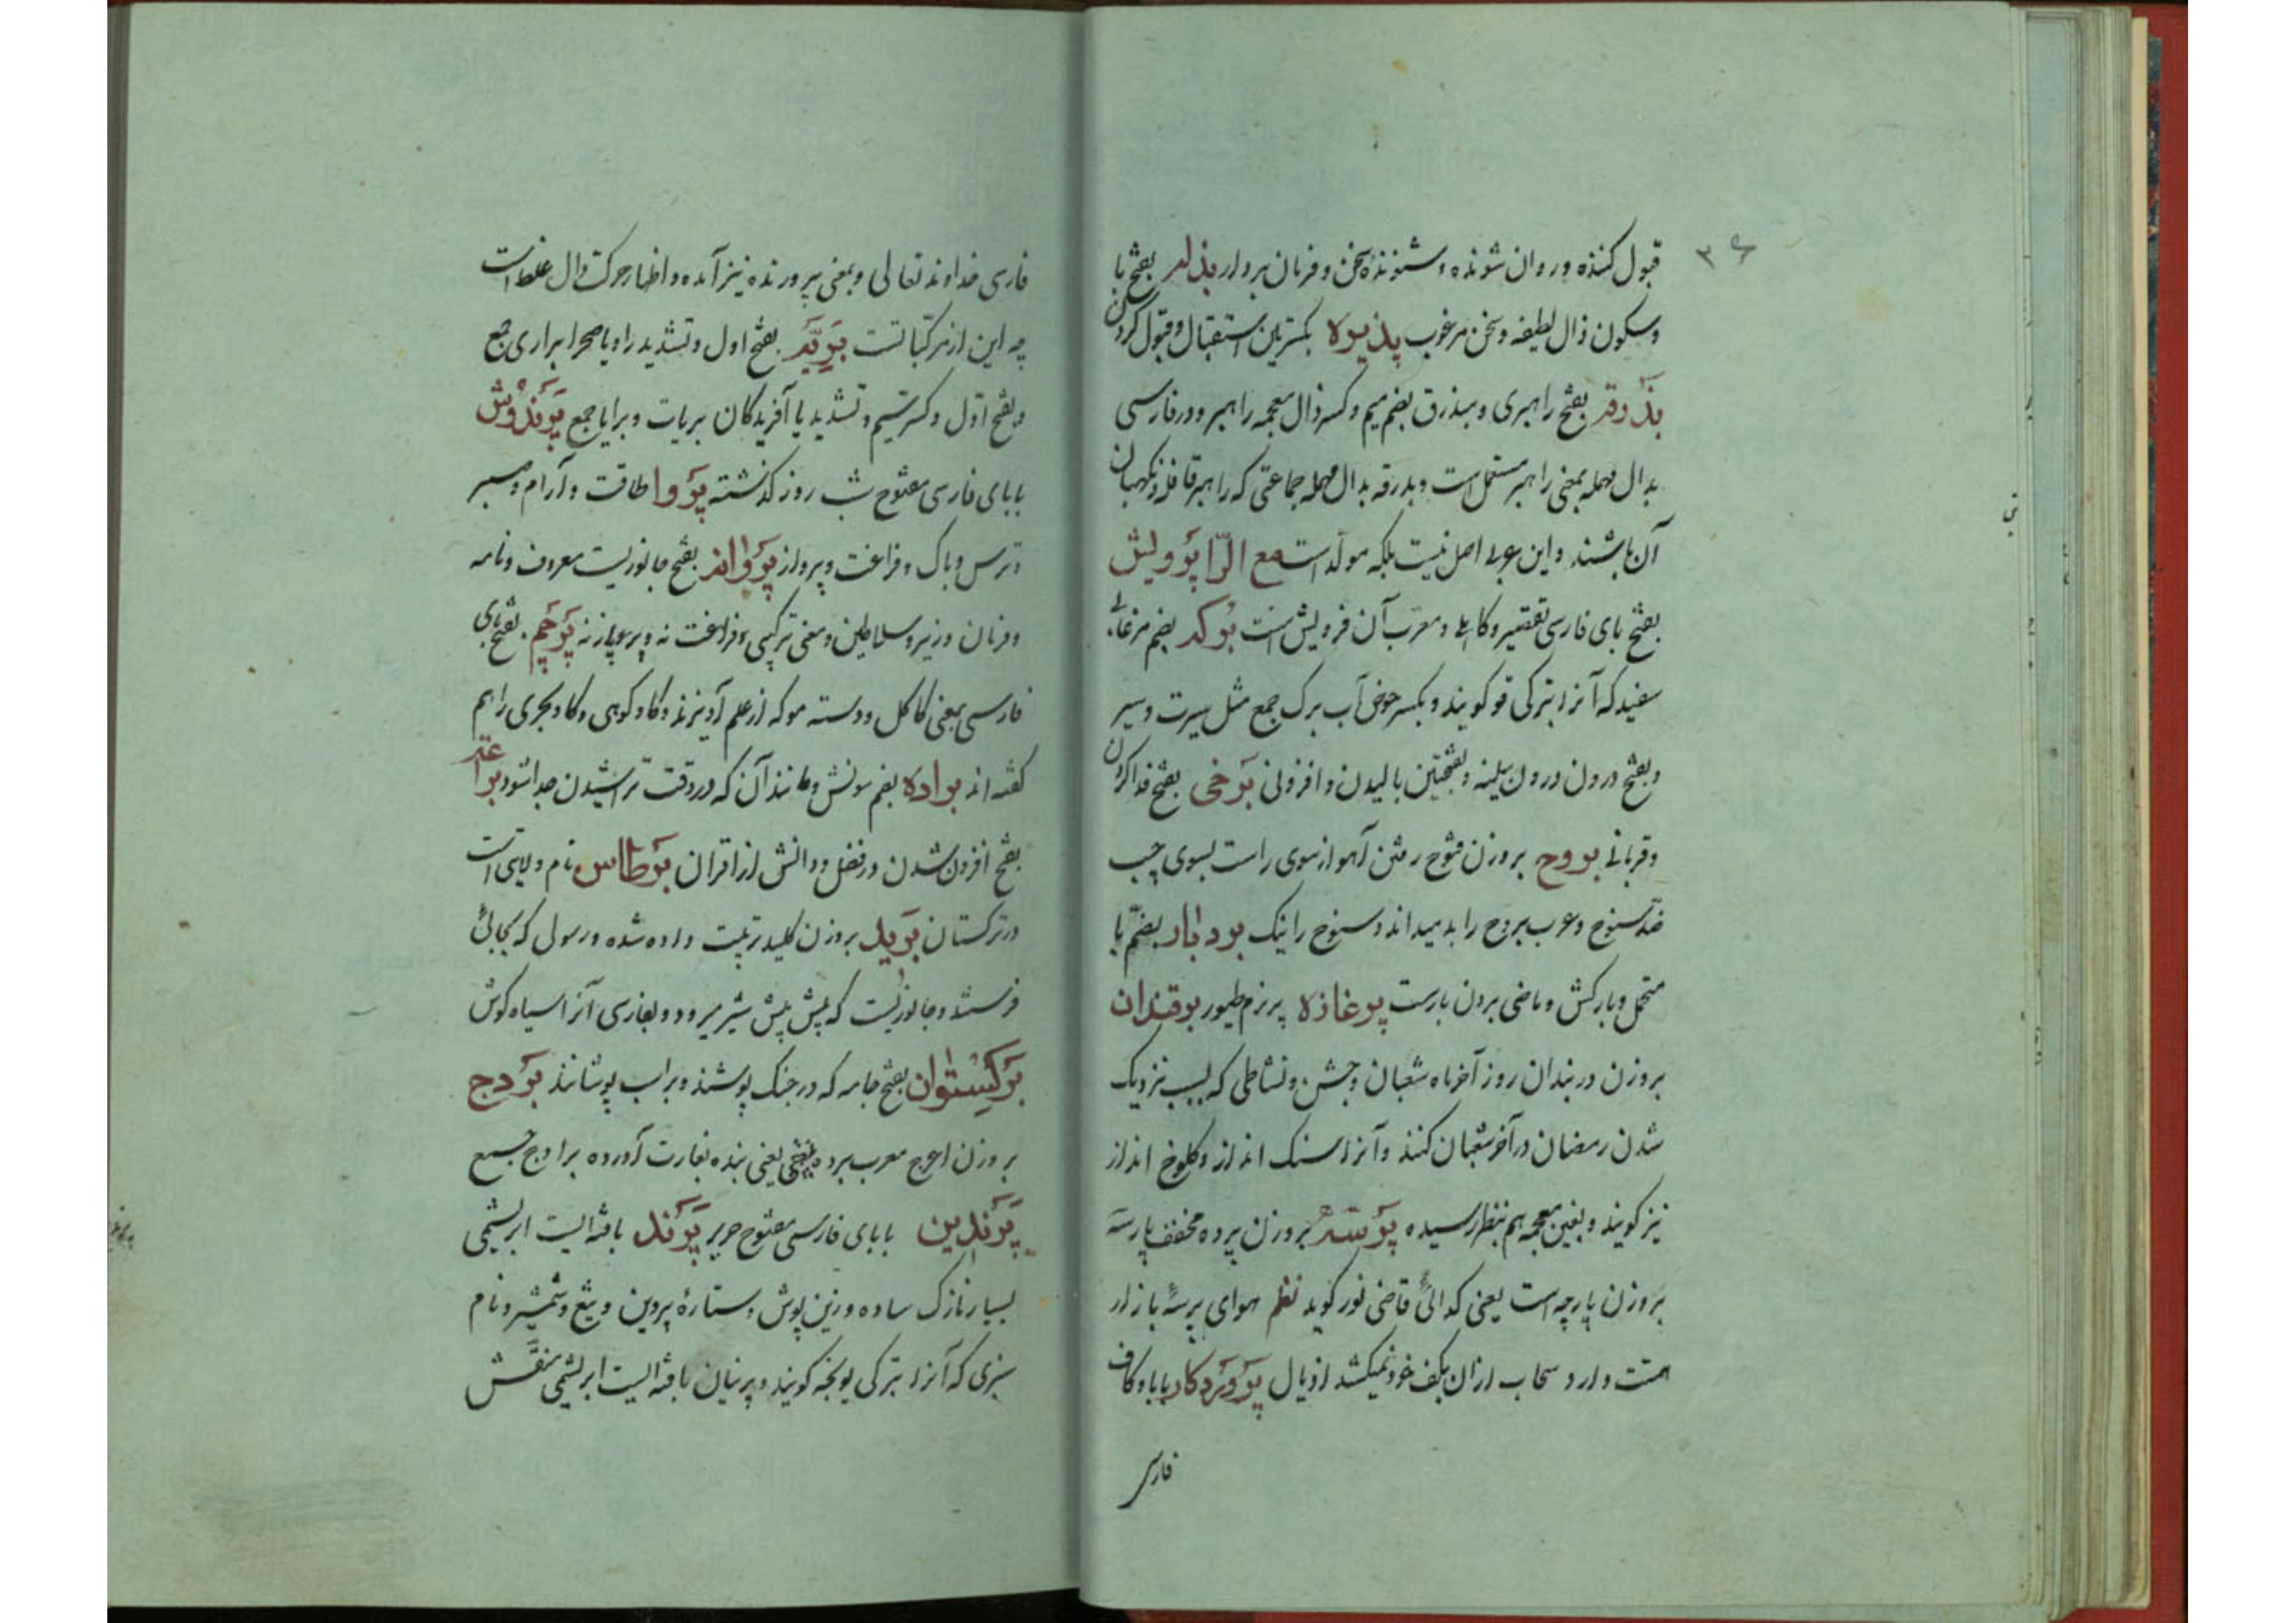 ۳۶
قبول کننده و روان شونده و شنونده سخن و فرمان بردار بذله بفتح با
وسکون ذال لطیفه و سخن مرغوب پذیره بکسرتین استقبال و قبول کردن
بذرقه بفتح راهبری و مبذرق بضم میم و کسر ذال معجمه راهبر و در فارسی
بدال مهمله بمعنی راهبر مستعمل است و بدرقه بدال مهمله جماعتی که راهبر قافله و نکهبان
آن باشند و این عربی اصل نیست بلکه مولد است مع الرّا پرویش
بفتح بای فارسی تقصیر و کاهلی و معرب آن فرویش است برکه بضم مرغابی
سفید که آنرا بترکی قو کویند و بکسر حوض آب برک جمع مثل سیرت و سیر
و بفتح درون درون سینه و بفتحتین بالیدن و افزونی برخی بفتح فدا کردن
و قربانی بروح بروزن فتوح رفتن آهو از سوی راست بسوی چپ
ضد سنوح و عرب بروح را بد میداند و سنوح را نیک بردبار بضم با
متحمل و بارکش و ماضی بردن بارست پرغازه پر زم طیور برقندان
بروزن دربندان روز آخر ماه شعبان و جشن و نشاطی که بسبب نزدیک
شدن رمضان در آخر شعبان کنند و آنرا سنک انداز و کلوخ انداز
نیز کویند و بغین معجمه هم بنظر رسیده پرسه بروزن پرده مخفف پارسه
بروزن پارچه است یعنی کدائی قاضی نور کوید نظم هوای پرسه بازار
همتت دارد سحاب ازان بکف خود میکشد اذیال پروردکار بابا و کاف
فارسی
فارسی خداوند تعالی و بمعنی پرورنده نیز آمده و اظهار حرکت دال غلط است
چه این از مرکباتست بریّه بفتح اول و تشدید را و یا صحرا براری جمع
و بفتح اوّل و کسر تسیم و تشدید یا آفریدکان بریات و برایا جمع پرندوش
بابای فارسی مفتوح شب روز کذشته پروا طاقت و آرام و صبر
و ترس و باک و فراغت و پرواز پروانه بفتح جانوریست معروف و نامه
و فرمان وزیر و سلاطین و معنی ترکیبی و فراغت نه و پرواز نه پرچم بفتح بای
فارسی بمعنی کاکل و دسته مو که از علم آویزند و کاو کوهی و کاو بحری را هم
کفته اند براده بضم سونش و مانند آن که در وقت تراشیدن جدا شود براعته
بفتح افزون شدن در فضل و دانش از اقران برطاس نام ولایتی است
در ترکستان برید بروزن کلید ترتیب داده شده و رسولی که بجائی
فرستند و جانوریست که پیش پیش شیر میرود و بفارسی آنرا سیاه کوش
برکستوان بفتح جامه که در جنک پوشند و بر اسب پوشانند بردج
بروزن اعرج معرب برده بفتح یعنی بنده بغارت آورده برادج جمع
پرندین بابای فارسی مفتوح حریر پرند بافته ایست ابریشمی
بسیار نازک ساده و زین پوش و ستارهٔ پروین و تیغ و شمشیر و نام
سبزی که آنرا بترکی یونجه کویند و پرنیان بافته ایست ابریشمی منقّش